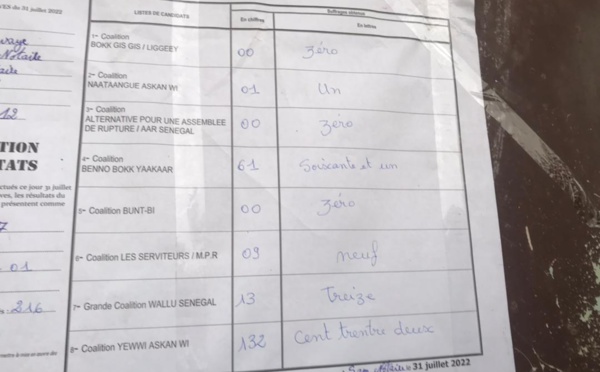 du 31 juillet 2022
LISTES DE CANDIDATS
Suffrages obtenus
En chiffres
En lettres
1- Coalition
BOKK GIS GIS / LIGGEEY
00
zéro
2- Coalition
NAATAANGUE ASKAN WI
01
Un
3- Coalition
ALTERNATIVE POUR UNE ASSEMBLEE
DE RUPTURE / AAR SENEGAL
00
zéro
4- Coalition
BENNO BOKK YAAKAAR
61
Soixante et un
5- Coalition BUNT-BI
00
zéro
6- Coalition LES SERVITEURS / M.P.R
09
neuf
7- Grande Coalition WALLU SENEGAL
13
Treize
8- Coalition YEWWI ASKAN WI
132
Cent trentre deux
31 juillet 2022
12
TION
TATS
ctués ce jour 31 juillet
ves, les résultats du
présentent comme
7
01
216